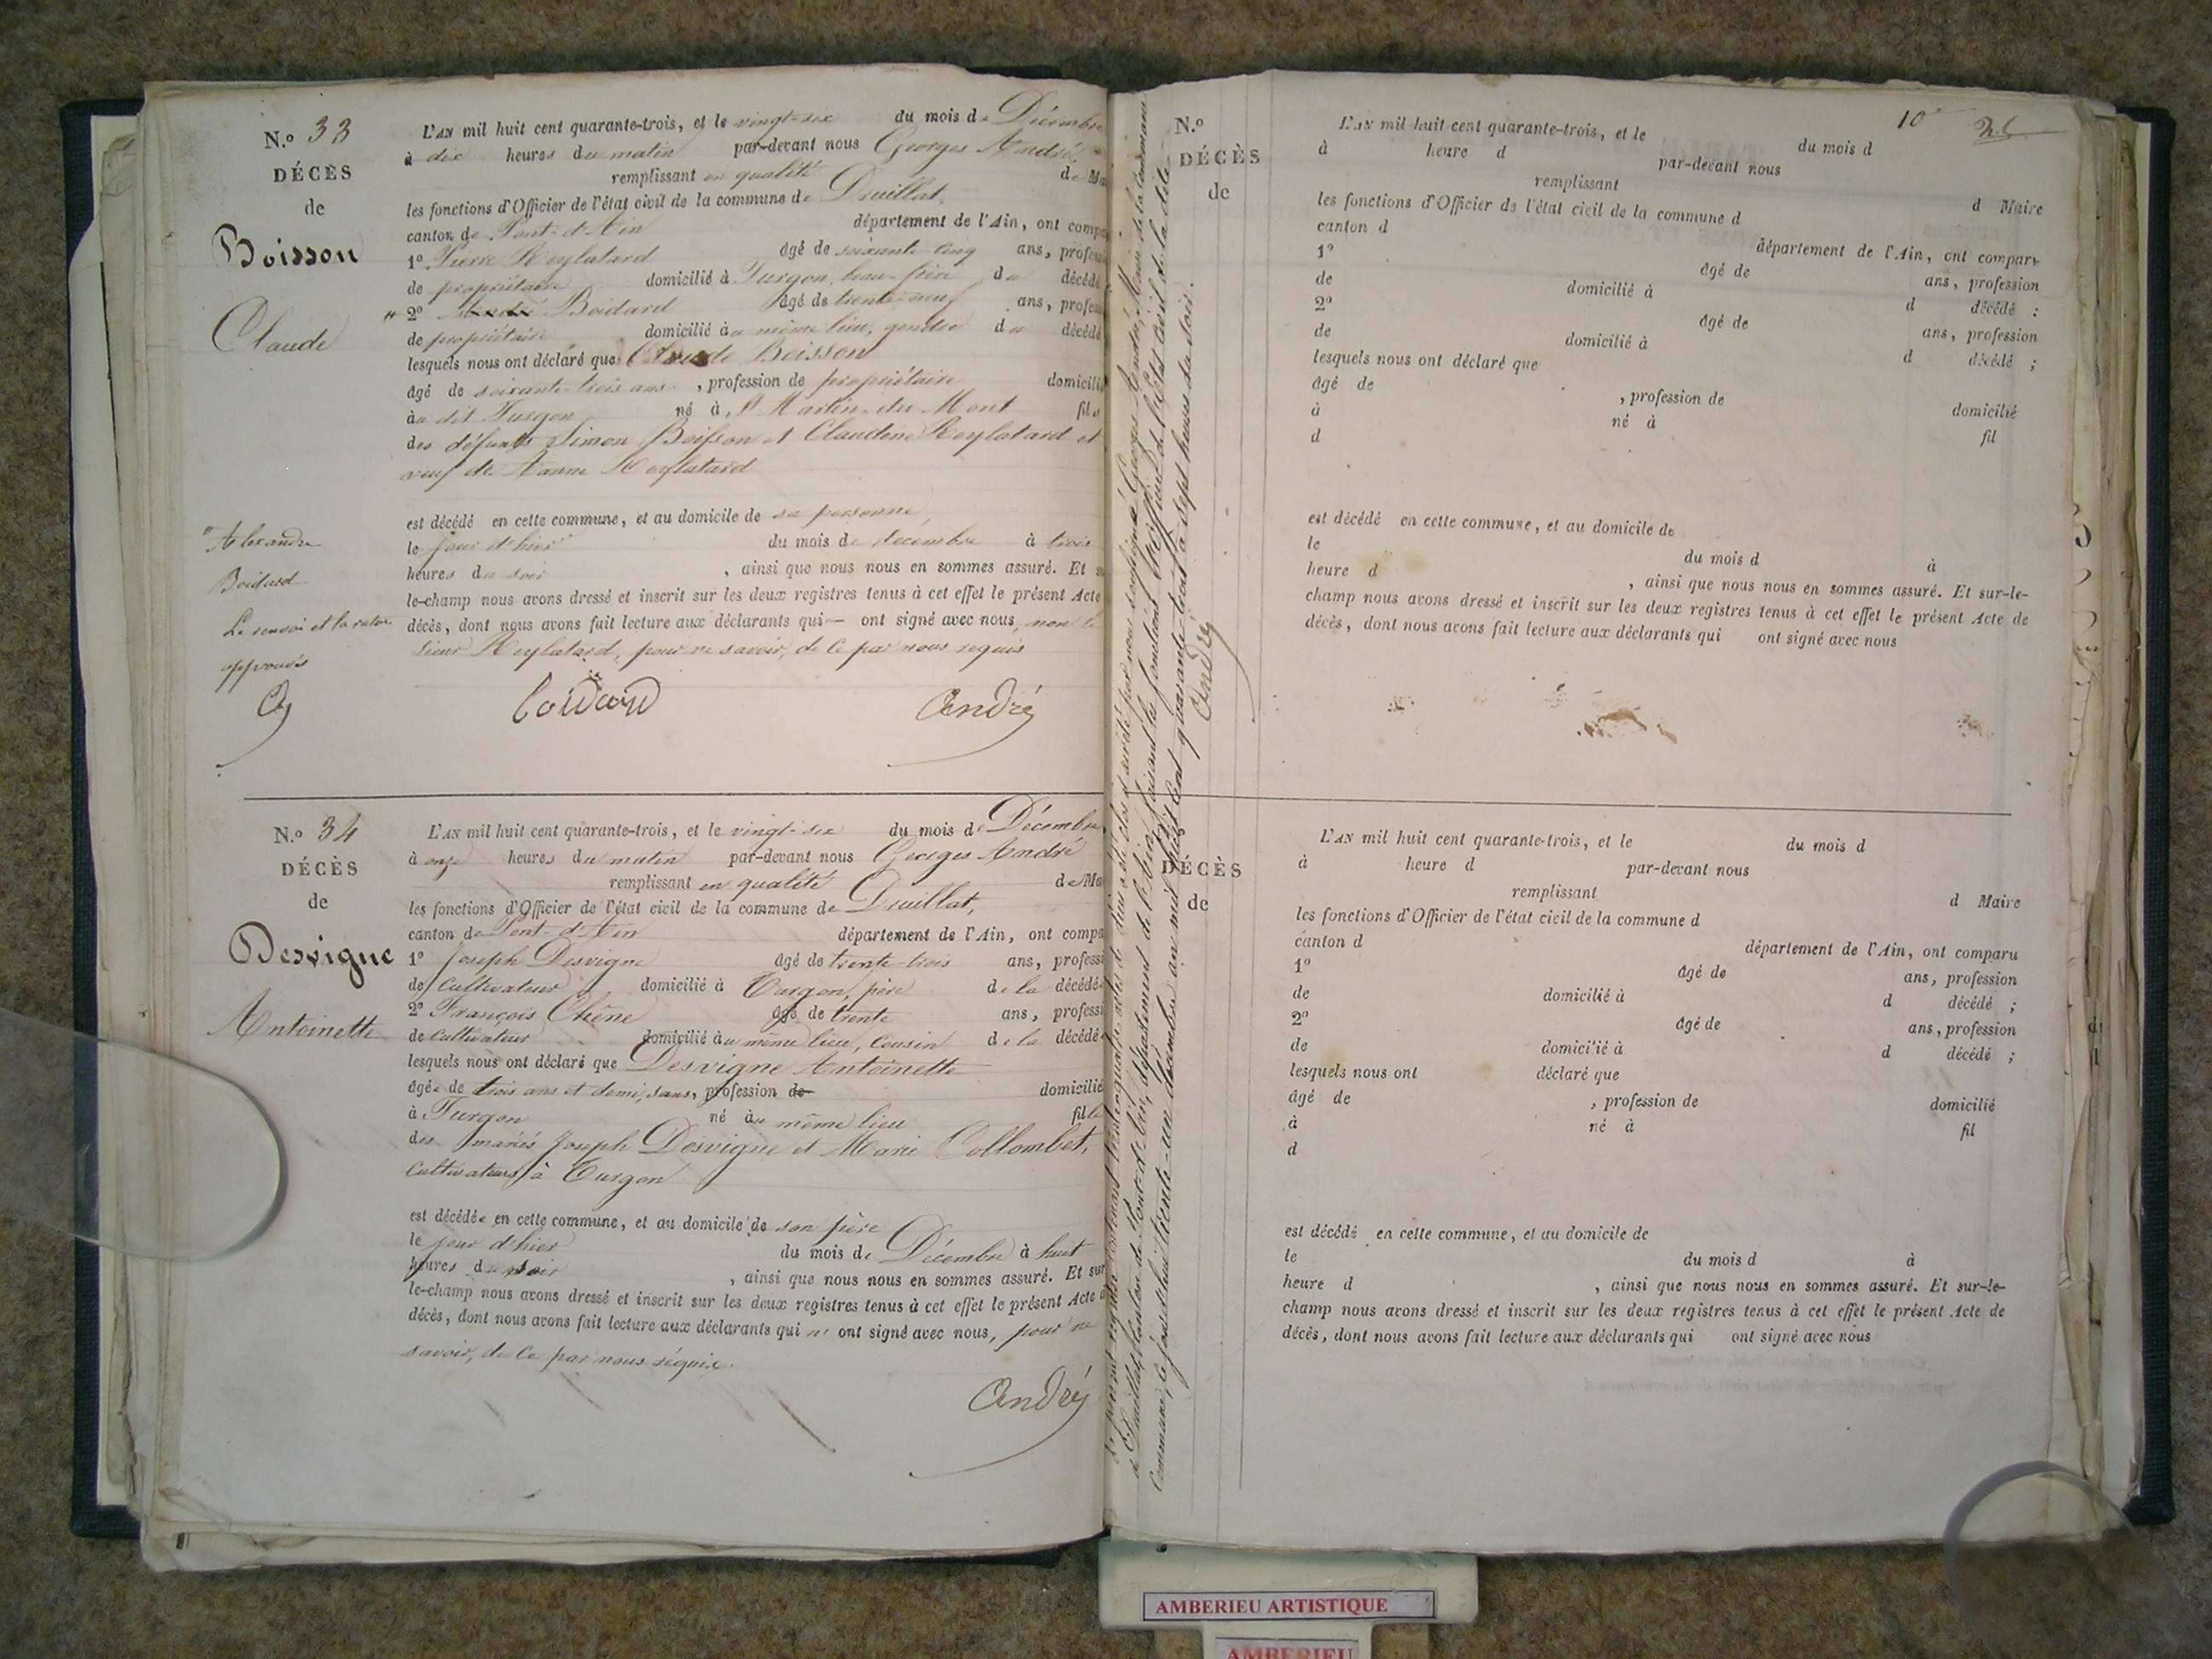 N.º 33
DÉCÈS
de
Boisson
Claude
L'AN mil huit cent quarante-trois, et le vingt-six du mois de Décembre
à dix heures du matin par-devant nous Georges André,
remplissant en qualité de Ma
les fonctions d'Officier de l'état civil de la commune de Druillat,
canton de Pont-d'Ain département de l'Ain, ont compa
1º Pierre Reylatard âgé de soixante-cinq ans, profess
de propriétaire domicilié à Turgon, beau-frère du décédé
" 2º Boidard âgé de trente-neuf ans, profess
de propriétaire domicilié au même lieu, gendre du décédé
lesquels nous ont déclaré que Claude Boisson
âgé de soixante-trois ans, profession de propriétaire domicilié
au dit Turgon né à St Martin-du-Mont fils
des défunts Simon Boisson et Claudine Reylatard et
veuf de Reylatard
est décédé en cette commune, et au domicile de sa personne,
le jour d'hier du mois de décembre à trois
heures du soir, ainsi que nous nous en sommes assuré. Et
le-champ nous avons dressé et inscrit sur les deux registres tenus à cet effet le présent Acte
décès, dont nous avons fait lecture aux déclarants qui — ont signé avec nous, non le
sieur Reylatard, pour ne savoir, de ce par nous requis
"Alexandre
Boidard
Le renvoi et la rature
approuvés
Boidard André
N.º 34
DÉCÈS
de
Desvigne
Antoinette
L'AN mil huit cent quarante-trois, et le vingt-six du mois de Décembre
à onze heures du matin par-devant nous Georges André
remplissant en qualité de Ma
les fonctions d'Officier de l'état civil de la commune de Druillat,
canton de Pont-d'Ain département de l'Ain, ont compa
1º Joseph Desvigne âgé de trente-trois ans, professi
de cultivateur domicilié à Turgon, père de la décédé
2º François Chêne âgé de trente ans, professi
de cultivateur domicilié au même lieu, cousin de la décédé
lesquels nous ont déclaré que Desvigne Antoinette
âgée de trois ans et demi, sans, profession de domicilié
à Turgon né au même lieu fille
des mariés Joseph Desvigne et Marie Collombet,
cultivateurs à Turgon
est décédée en cette commune, et au domicile de son père
le jour d'hier du mois de Décembre à huit
heures du soir, ainsi que nous nous en sommes assuré. Et sur
le-champ nous avons dressé et inscrit sur les deux registres tenus à cet effet le présent Acte d
décès, dont nous avons fait lecture aux déclarants qui n' ont signé avec nous, pour ne
savoir, de ce par nous requis.
André
Le présent registre contenant trente-quatre actes de décès a été clos et arrêté par nous soussigné Georges André, Maire de la commune
de Druillat, canton de Pont-d'Ain, département de l'Ain, faisant les fonctions d'officier de l'état civil de la dite
commune, le trente-un décembre an mil huit cent quarante-trois à sept heures du soir.
André
10
N.º
DÉCÈS
de
L'AN mil huit cent quarante-trois, et le du mois d
à heure d par-devant nous
remplissant d Maire
les fonctions d'Officier de l'état civil de la commune d
canton d département de l'Ain, ont comparu
1º âgé de ans, profession
de domicilié à d décédé ;
2º âgé de ans, profession
de domicilié à d décédé ;
lesquels nous ont déclaré que
âgé de , profession de domicilié
à né à fil
d
est décédé en cette commune, et au domicile de
le du mois d à
heure d , ainsi que nous nous en sommes assuré. Et sur-le-
champ nous avons dressé et inscrit sur les deux registres tenus à cet effet le présent Acte de
décès, dont nous avons fait lecture aux déclarants qui ont signé avec nous
DÉCÈS
de
L'AN mil huit cent quarante-trois, et le du mois d
à heure d par-devant nous
remplissant d Maire
les fonctions d'Officier de l'état civil de la commune d
canton d département de l'Ain, ont comparu
1º âgé de ans, profession
de domicilié à d décédé ;
2º âgé de ans, profession
de domicilié à d décédé ;
lesquels nous ont déclaré que
âgé de , profession de domicilié
à né à fil
d
est décédé en cette commune, et au domicile de
le du mois d à
heure d , ainsi que nous nous en sommes assuré. Et sur-le-
champ nous avons dressé et inscrit sur les deux registres tenus à cet effet le présent Acte de
décès, dont nous avons fait lecture aux déclarants qui ont signé avec nous
AMBERIEU ARTISTIQUE
AMBERIEU